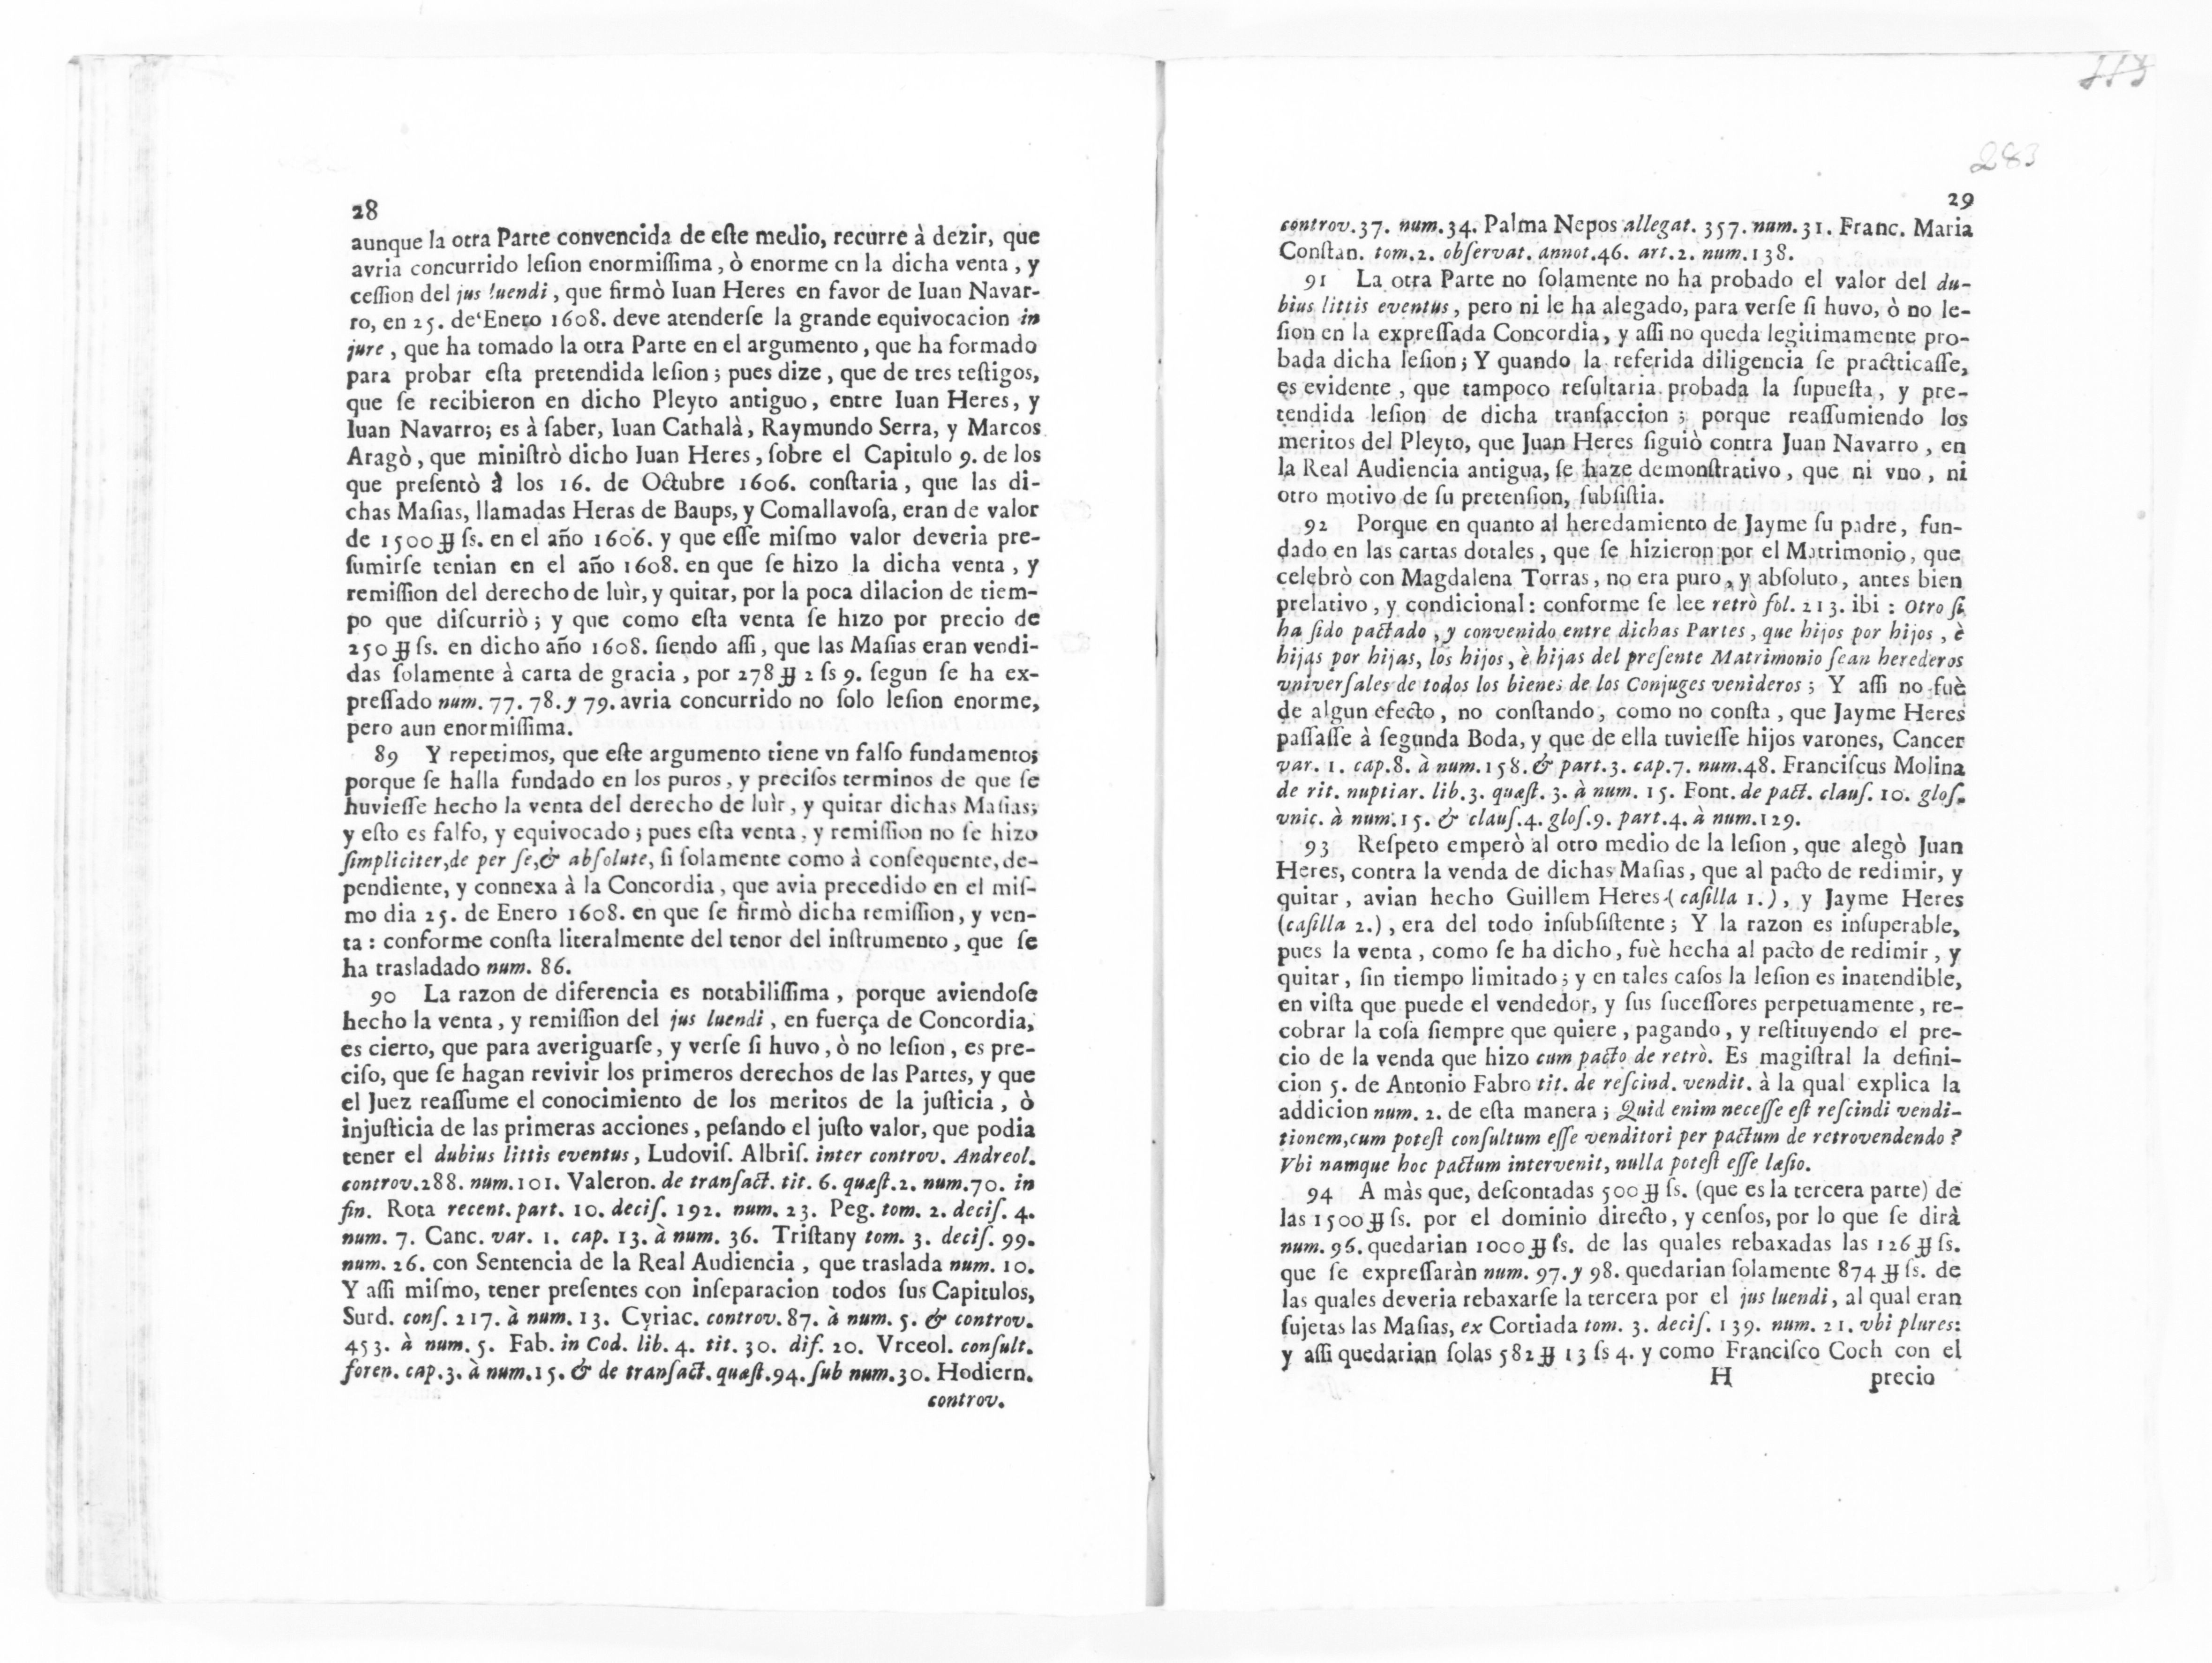 28
aunque la otra Parte convencida de eſte medio, recurre à dezir, que
avria concurrido leſion enormiſſima, ò enorme en la dicha venta, y
ceſſion del jus luendi, que firmò Iuan Heres en favor de Iuan Navar-
ro, en 25. de Enero 1608. deve atenderſe la grande equivocacion in
jure, que ha tomado la otra Parte en el argumento, que ha formado
para probar eſta pretendida leſion; pues dize, que de tres teſtigos,
que ſe recibieron en dicho Pleyto antiguo, entre Iuan Heres, y
Iuan Navarro; es à ſaber, Iuan Cathalà, Raymundo Serra, y Marcos
Aragò, que miniſtrò dicho Juan Heres, ſobre el Capitulo 9. de los
que preſentò à los 16. de Octubre 1606. conſtaria, que las di-
chas Maſias, llamadas Heras de Baups, y Comallavoſa, eran de valor
de 1500 ℔ ſs. en el año 1606. y que eſſe miſmo valor deveria pre-
ſumirſe tenian en el año 1608. en que ſe hizo la dicha venta, y
remiſſion del derecho de luìr, y quitar, por la poca dilacion de tiem-
po que diſcurriò; y que como eſta venta ſe hizo por precio de
250 ℔ ſs. en dicho año 1608. ſiendo aſſi, que las Maſias eran vendi-
das ſolamente à carta de gracia, por 278 ℔ 2 ſs 9. ſegun ſe ha ex-
preſſado num. 77. 78. y 79. avria concurrido no ſolo leſion enorme,
pero aun enormiſſima.
89 Y repetimos, que eſte argumento tiene vn falſo fundamento;
porque ſe halla fundado en los puros, y preciſos terminos de que ſe
huvieſſe hecho la venta del derecho de luìr, y quitar dichas Maſias;
y eſto es falſo, y equivocado; pues eſta venta, y remiſſion no ſe hizo
ſimpliciter, de per ſe, & abſolute, ſi ſolamente como à conſequente, de-
pendiente, y connexa à la Concordia, que avia precedido en el miſ-
mo dia 25. de Enero 1608. en que ſe firmò dicha remiſſion, y ven-
ta: conforme conſta literalmente del tenor del inſtrumento, que ſe
ha trasladado num. 86.
90 La razon de diferencia es notabiliſſima, porque aviendoſe
hecho la venta, y remiſſion del jus luendi, en fuerça de Concordia,
es cierto, que para averiguarſe, y verſe ſi huvo, ò no leſion, es pre-
ciſo, que ſe hagan revivir los primeros derechos de las Partes, y que
el Juez reaſſume el conocimiento de los meritos de la juſticia, ò
injuſticia de las primeras acciones, peſando el juſto valor, que podia
tener el dubius littis eventus, Ludoviſ. Albriſ. inter controv. Andreol.
controv. 288. num. 101. Valeron. de tranſact. tit. 6. quæſt. 2. num. 70. in
fin. Rota recent. part. 10. deciſ. 192. num. 23. Peg. tom. 2. deciſ. 4.
num. 7. Canc. var. 1. cap. 13. à num. 36. Triſtany tom. 3. deciſ. 99.
num. 26. con Sentencia de la Real Audiencia, que traslada num. 10.
Y aſſi miſmo, tener preſentes con inſeparacion todos ſus Capitulos,
Surd. conſ. 217. à num. 13. Cyriac. controv. 87. à num. 5. & controv.
453. à num. 5. Fab. in Cod. lib. 4. tit. 30. dif. 20. Vrceol. conſult.
foren. cap. 3. à num. 15. & de tranſact. quæſt. 94. ſub num. 30. Hodiern.
controv.
283
29
controv. 37. num. 34. Palma Nepos allegat. 357. num. 31. Franc. Maria
Conſtan. tom. 2. obſervat. annot. 46. art. 2. num. 138.
91 La otra Parte no ſolamente no ha probado el valor del du-
bius littis eventus, pero ni le ha alegado, para verſe ſi huvo, ò no le-
ſion en la expreſſada Concordia, y aſſi no queda legitimamente pro-
bada dicha leſion; Y quando la referida diligencia ſe practticaſſe,
es evidente, que tampoco reſultaria probada la ſupueſta, y pre-
tendida leſion de dicha tranſaccion; porque reaſſumiendo los
meritos del Pleyto, que Juan Heres ſiguiò contra Juan Navarro, en
la Real Audiencia antigua, ſe haze demonſtrativo, que ni vno, ni
otro motivo de ſu pretenſion, ſubſiſtia.
92 Porque en quanto al heredamiento de Jayme ſu padre, fun-
dado en las cartas dotales, que ſe hizieron por el Matrimonio, que
celebrò con Magdalena Torras, no era puro, y abſoluto, antes bien
prelativo, y condicional: conforme ſe lee retrò fol. 213. ibi: Otro ſi
ha ſido pactado, y convenido entre dichas Partes, que hijos por hijos, è
hijas por hijas, los hijos, è hijas del preſente Matrimonio ſean herederos
vniverſales de todos los bienes de los Conjuges venideros; Y aſſi no fuè
de algun efecto, no conſtando, como no conſta, que Jayme Heres
paſſaſſe à ſegunda Boda, y que de ella tuvieſſe hijos varones, Cancer
var. 1. cap. 8. à num. 158. & part. 3. cap. 7. num. 48. Franciſcus Molina
de rit. nuptiar. lib. 3. quæſt. 3. à num. 15. Font. de pact. clauſ. 10. gloſ.
vnic. à num. 15. & clauſ. 4. gloſ. 9. part. 4. à num. 129.
93 Reſpeto emperò al otro medio de la leſion, que alegò Juan
Heres, contra la venda de dichas Maſias, que al pacto de redimir, y
quitar, avian hecho Guillem Heres (caſilla 1.), y Jayme Heres
(caſilla 2.), era del todo inſubſiſtente; Y la razon es inſuperable,
pues la venta, como ſe ha dicho, fuè hecha al pacto de redimir, y
quitar, ſin tiempo limitado; y en tales caſos la leſion es inatendible,
en viſta que puede el vendedor, y ſus ſuceſſores perpetuamente, re-
cobrar la coſa ſiempre que quiere, pagando, y reſtituyendo el pre-
cio de la venda que hizo cum pacto de retrò. Es magiſtral la defini-
cion 5. de Antonio Fabro tit. de reſcind. vendit. à la qual explica la
addicion num. 2. de eſta manera; Quid enim neceſſe eſt reſcindi vendi-
tionem, cum poteſt conſultum eſſe venditori per pactum de retrovendendo?
Vbi namque hoc pactum intervenit, nulla poteſt eſſe læſio.
94 A màs que, deſcontadas 500 ℔ ſs. (que es la tercera parte) de
las 1500 ℔ ſs. por el dominio directo, y cenſos, por lo que ſe dirà
num. 96. quedarian 1000 ℔ ſs. de las quales rebaxadas las 126 ℔ ſs.
que ſe expreſſaràn num. 97. y 98. quedarian ſolamente 874 ℔ ſs. de
las quales deveria rebaxarſe la tercera por el jus luendi, al qual eran
ſujetas las Maſias, ex Cortiada tom. 3. deciſ. 139. num. 21. vbi plures:
y aſſi quedarian ſolas 582 ℔ 13 ſs 4. y como Franciſco Coch con el
H precio